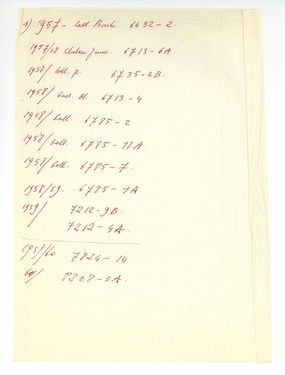 1) 1957 - Coll. 6432-2.
1957/58 6713-6A
1958/ Coll. P. 6735-4B.
1958/ H. 6713-4
1958/ Coll. 6785-2
1958/ Coll. 6785-11A
1958/ Coll. 6785-7.
1958/59. 6785-1A
1959/ 7212-9B.
7212-4A.
1959/60 7824-14
60/ 8208-5A.